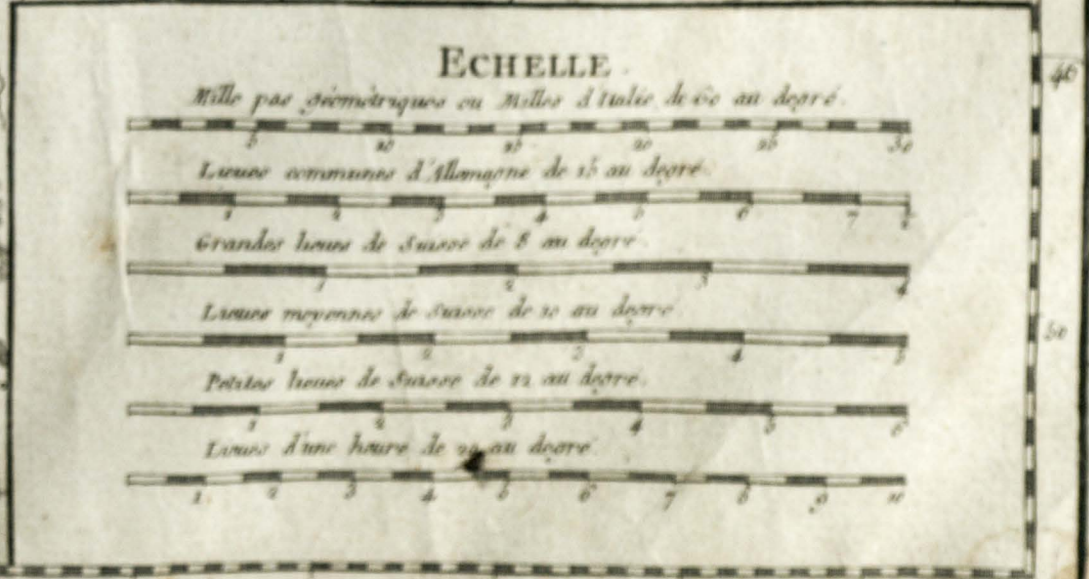 ECHELLE.
Mille pas géométriques ou Milles d'Italie de 60 au degré.
5 10 15 20 25 30
Lieues communes d'Allemagne de 15 au degré.
1 2 3 4 5 6 7 8
Grandes lieues de Suisse de 8 au degré.
1 2 3 4
Lieues moyennes de Suisse de 10 au degré.
1 2 3 4 5
Petites lieues de Suisse de 12 au degré.
1 2 3 4 5 6
Lieues d'une heure de 20 au degré.
1 2 3 4 5 6 7 8 9 10
46
50